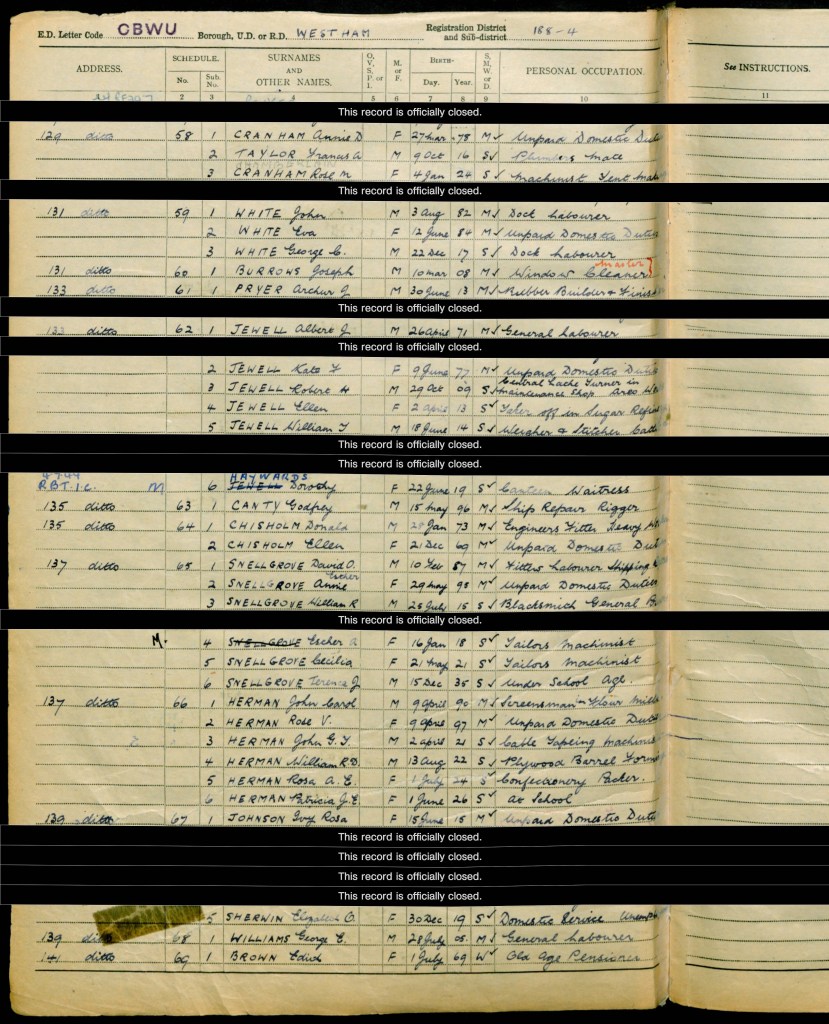 E.D. Letter Code CBWU Borough, U.D. or R.D. WEST HAM Registration District and Sub-district 188-4
ADDRESS. SCHEDULE. SURNAMES AND OTHER NAMES. O, V, S, P, or I. M. or F. BIRTH- S, M, W, or D. PERSONAL OCCUPATION. See INSTRUCTIONS.
No. Sub. No. Day. Year.
2 3 4 5 6 7 8 9 10 11
This record is officially closed.
129 ditto 58 1 CRANHAM Annie D F 27 Mar 78 M Unpaid Domestic
2 TAYLOR Francis A M 9 Oct 16 S Plumbers Mate
3 CRANHAM Rose M F 4 Jan 24 S Machinist Tent
This record is officially closed.
131 ditto 59 1 WHITE John M 3 Aug 82 M Dock Labourer
2 WHITE Eva F 12 June 84 M Unpaid Domestic Duties
3 WHITE George C. M 22 Dec 17 S Dock Labourer
131 ditto 60 1 BURROWS Joseph M 10 Mar 08 M Window Cleaner Master
133 ditto 61 1 PRYER Archur J M 30 June 13 M Rubber Builder & Finis
This record is officially closed.
133 ditto 62 1 JEWELL Albert J M 26 April 71 M General Labourer
This record is officially closed.
2 JEWELL Kate F 9 June 77 M Unpaid Domestic Duties
3 JEWELL Robert H M 29 Oct 09 S General Lathe Turner in Maintenance Shop
4 JEWELL Ellen F 2 April 13 S Taker off in Sugar Refin
5 JEWELL William J M 18 June 14 S Weigher & Stitcher
This record is officially closed.
This record is officially closed.
R.B.T. 1.c. M 6 HAYWARDS JEWELL Dorothy F 22 June 19 S Canteen Waitress
135 ditto 63 1 CANTY Godfrey M 15 May 96 M Ship Repair Rigger
135 ditto 64 1 CHISHOLM Donald M 28 Jan 73 M Engineers Fitter Heavy
2 CHISHOLM Ellen F 21 Dec 69 M Unpaid Domestic Dut
137 ditto 65 1 SNELLGROVE David O. M 10 Feb 87 M Fitters Labourer Shipping
2 SNELLGROVE Annie Esther F 29 May 95 M Unpaid Domestic Duties
3 SNELLGROVE William R M 25 July 15 S Blacksmith General
This record is officially closed.
M. 4 SNELLGROVE Esther A F 16 Jan 18 S Tailors Machinist
5 SNELLGROVE Cecilia F 21 May 21 S Tailors Machinist
6 SNELLGROVE Terence J M 15 Dec 35 S Under School Age.
137 ditto 66 1 HERMAN John Carol M 9 April 90 M Screensman Flour Mills
2 HERMAN Rose V. F 9 April 97 M Unpaid Domestic Duties
3 HERMAN John G. T. M 2 April 21 S Cable Tapeing Machinis
4 HERMAN William R D. M 13 Aug 22 S Plywood Barrel Form
5 HERMAN Rosa A. E. F 1 July 24 S Confectionery Packer.
6 HERMAN Patricia J. E. F 1 June 26 S At School
139 ditto 67 1 JOHNSON Ivy Rosa F 15 June 15 M Unpaid Domestic Dutie
This record is officially closed.
This record is officially closed.
This record is officially closed.
This record is officially closed.
5 SHERWIN Elizabeth O. F 30 Dec 19 S Domestic Service Unemp
139 ditto 68 1 WILLIAMS George E. M 28 July 05 M General Labourer
141 ditto 69 1 BROWN Edith F 1 July 69 W Old Age Pensioner